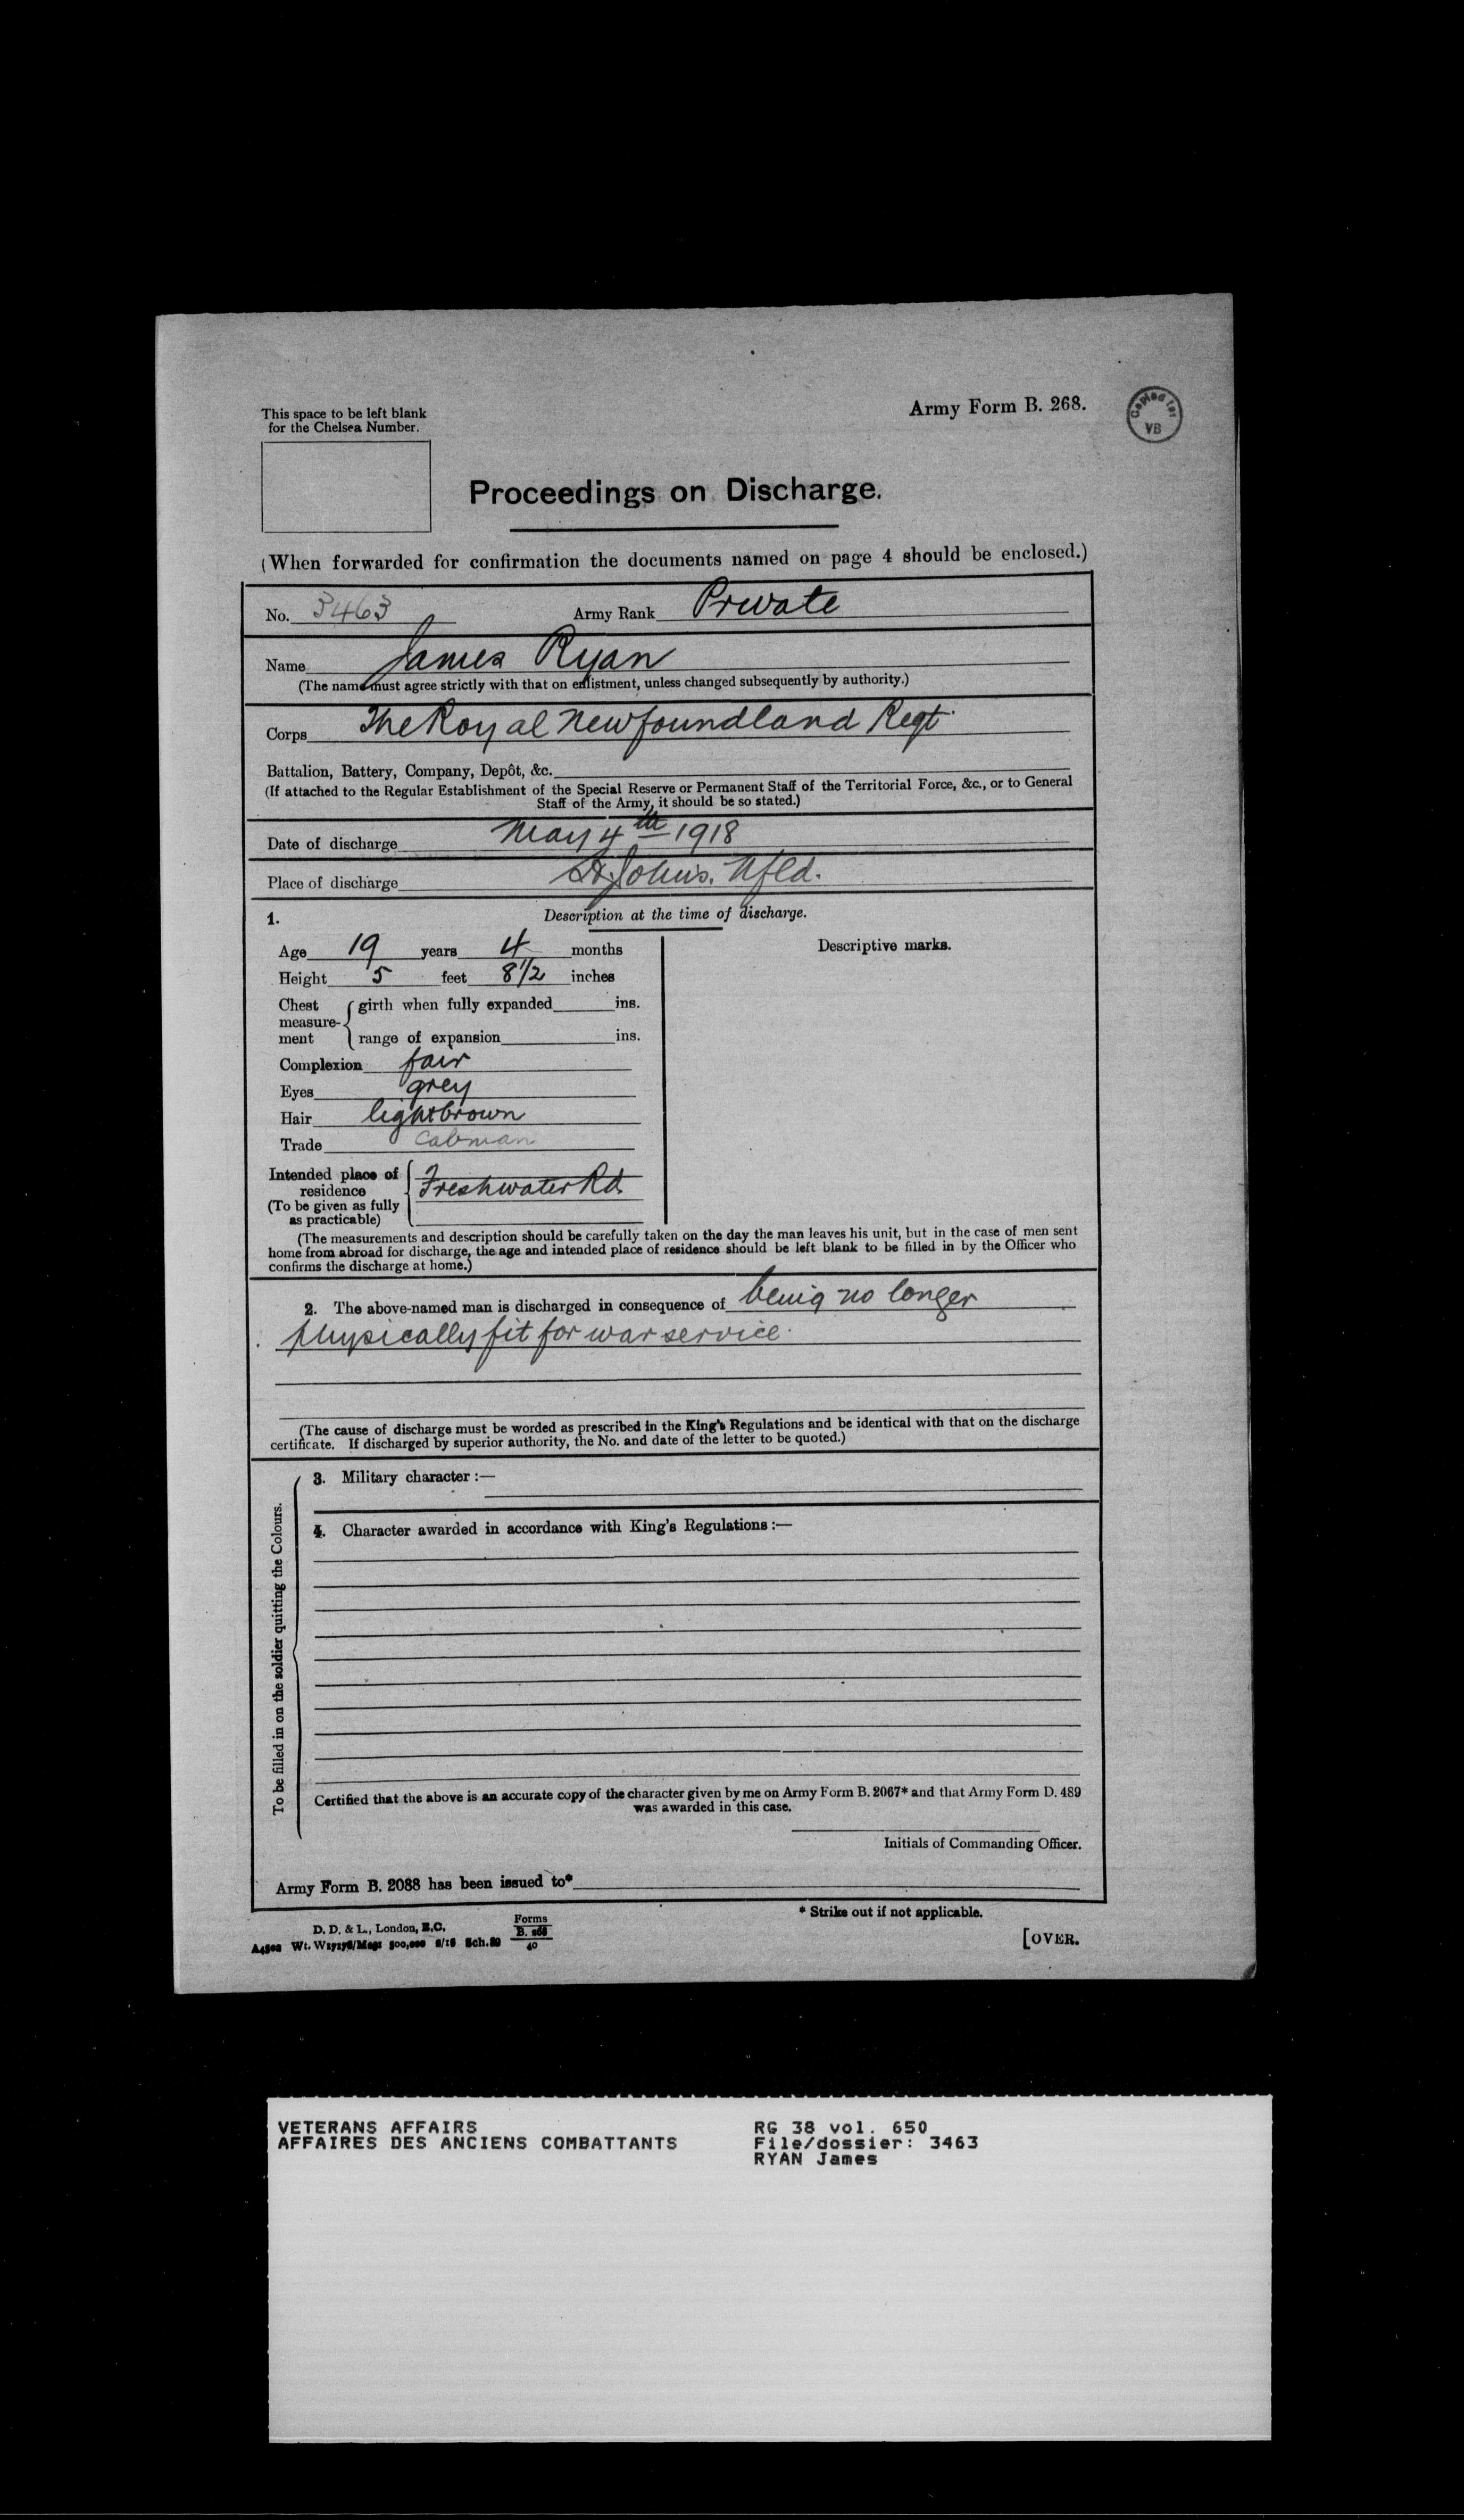 This space to be left blank
for the Chelsea Number.
Army Form B. 268.
Copied for
VB
Proceedings on Discharge.
(When forwarded for confirmation the documents named on page 4 should be enclosed.)
No. 3463 Army Rank Private
Name James Ryan
(The name must agree strictly with that on enlistment, unless changed subsequently by authority.)
Corps The Royal Newfoundland Regt.
Battalion, Battery, Company, Depôt, &c.
(If attached to the Regular Establishment of the Special Reserve or Permanent Staff of the Territorial Force, &c., or to General
Staff of the Army, it should be so stated.)
Date of discharge May 4th 1918
Place of discharge St. John's. Nfld.
1. Description at the time of discharge.
Age 19 years 4 months
Descriptive marks.
Height 5 feet 8 1/2 inches
Chest measurement girth when fully expanded ins.
range of expansion ins.
Complexion fair
Eyes grey
Hair light brown
Trade Cabman
Intended place of residence Freshwater Rd.
(To be given as fully
as practicable)
(The measurements and description should be carefully taken on the day the man leaves his unit, but in the case of men sent
home from abroad for discharge, the age and intended place of residence should be left blank to be filled in by the Officer who
confirms the discharge at home.)
2. The above-named man is discharged in consequence of being no longer
physically fit for war service.
(The cause of discharge must be worded as prescribed in the King's Regulations and be identical with that on the discharge
certificate. If discharged by superior authority, the No. and date of the letter to be quoted.)
To be filled in on the soldier quitting the Colours.
3. Military character :—
4. Character awarded in accordance with King's Regulations :—
Certified that the above is an accurate copy of the character given by me on Army Form B. 2067* and that Army Form D. 489
was awarded in this case.
Initials of Commanding Officer.
Army Form B. 2088 has been issued to*
* Strike out if not applicable.
D. D. & L., London, E.C.
Forms
B. 268
40
[OVER.
VETERANS AFFAIRS
AFFAIRES DES ANCIENS COMBATTANTS
RG 38 vol. 650
File/dossier: 3463
RYAN James